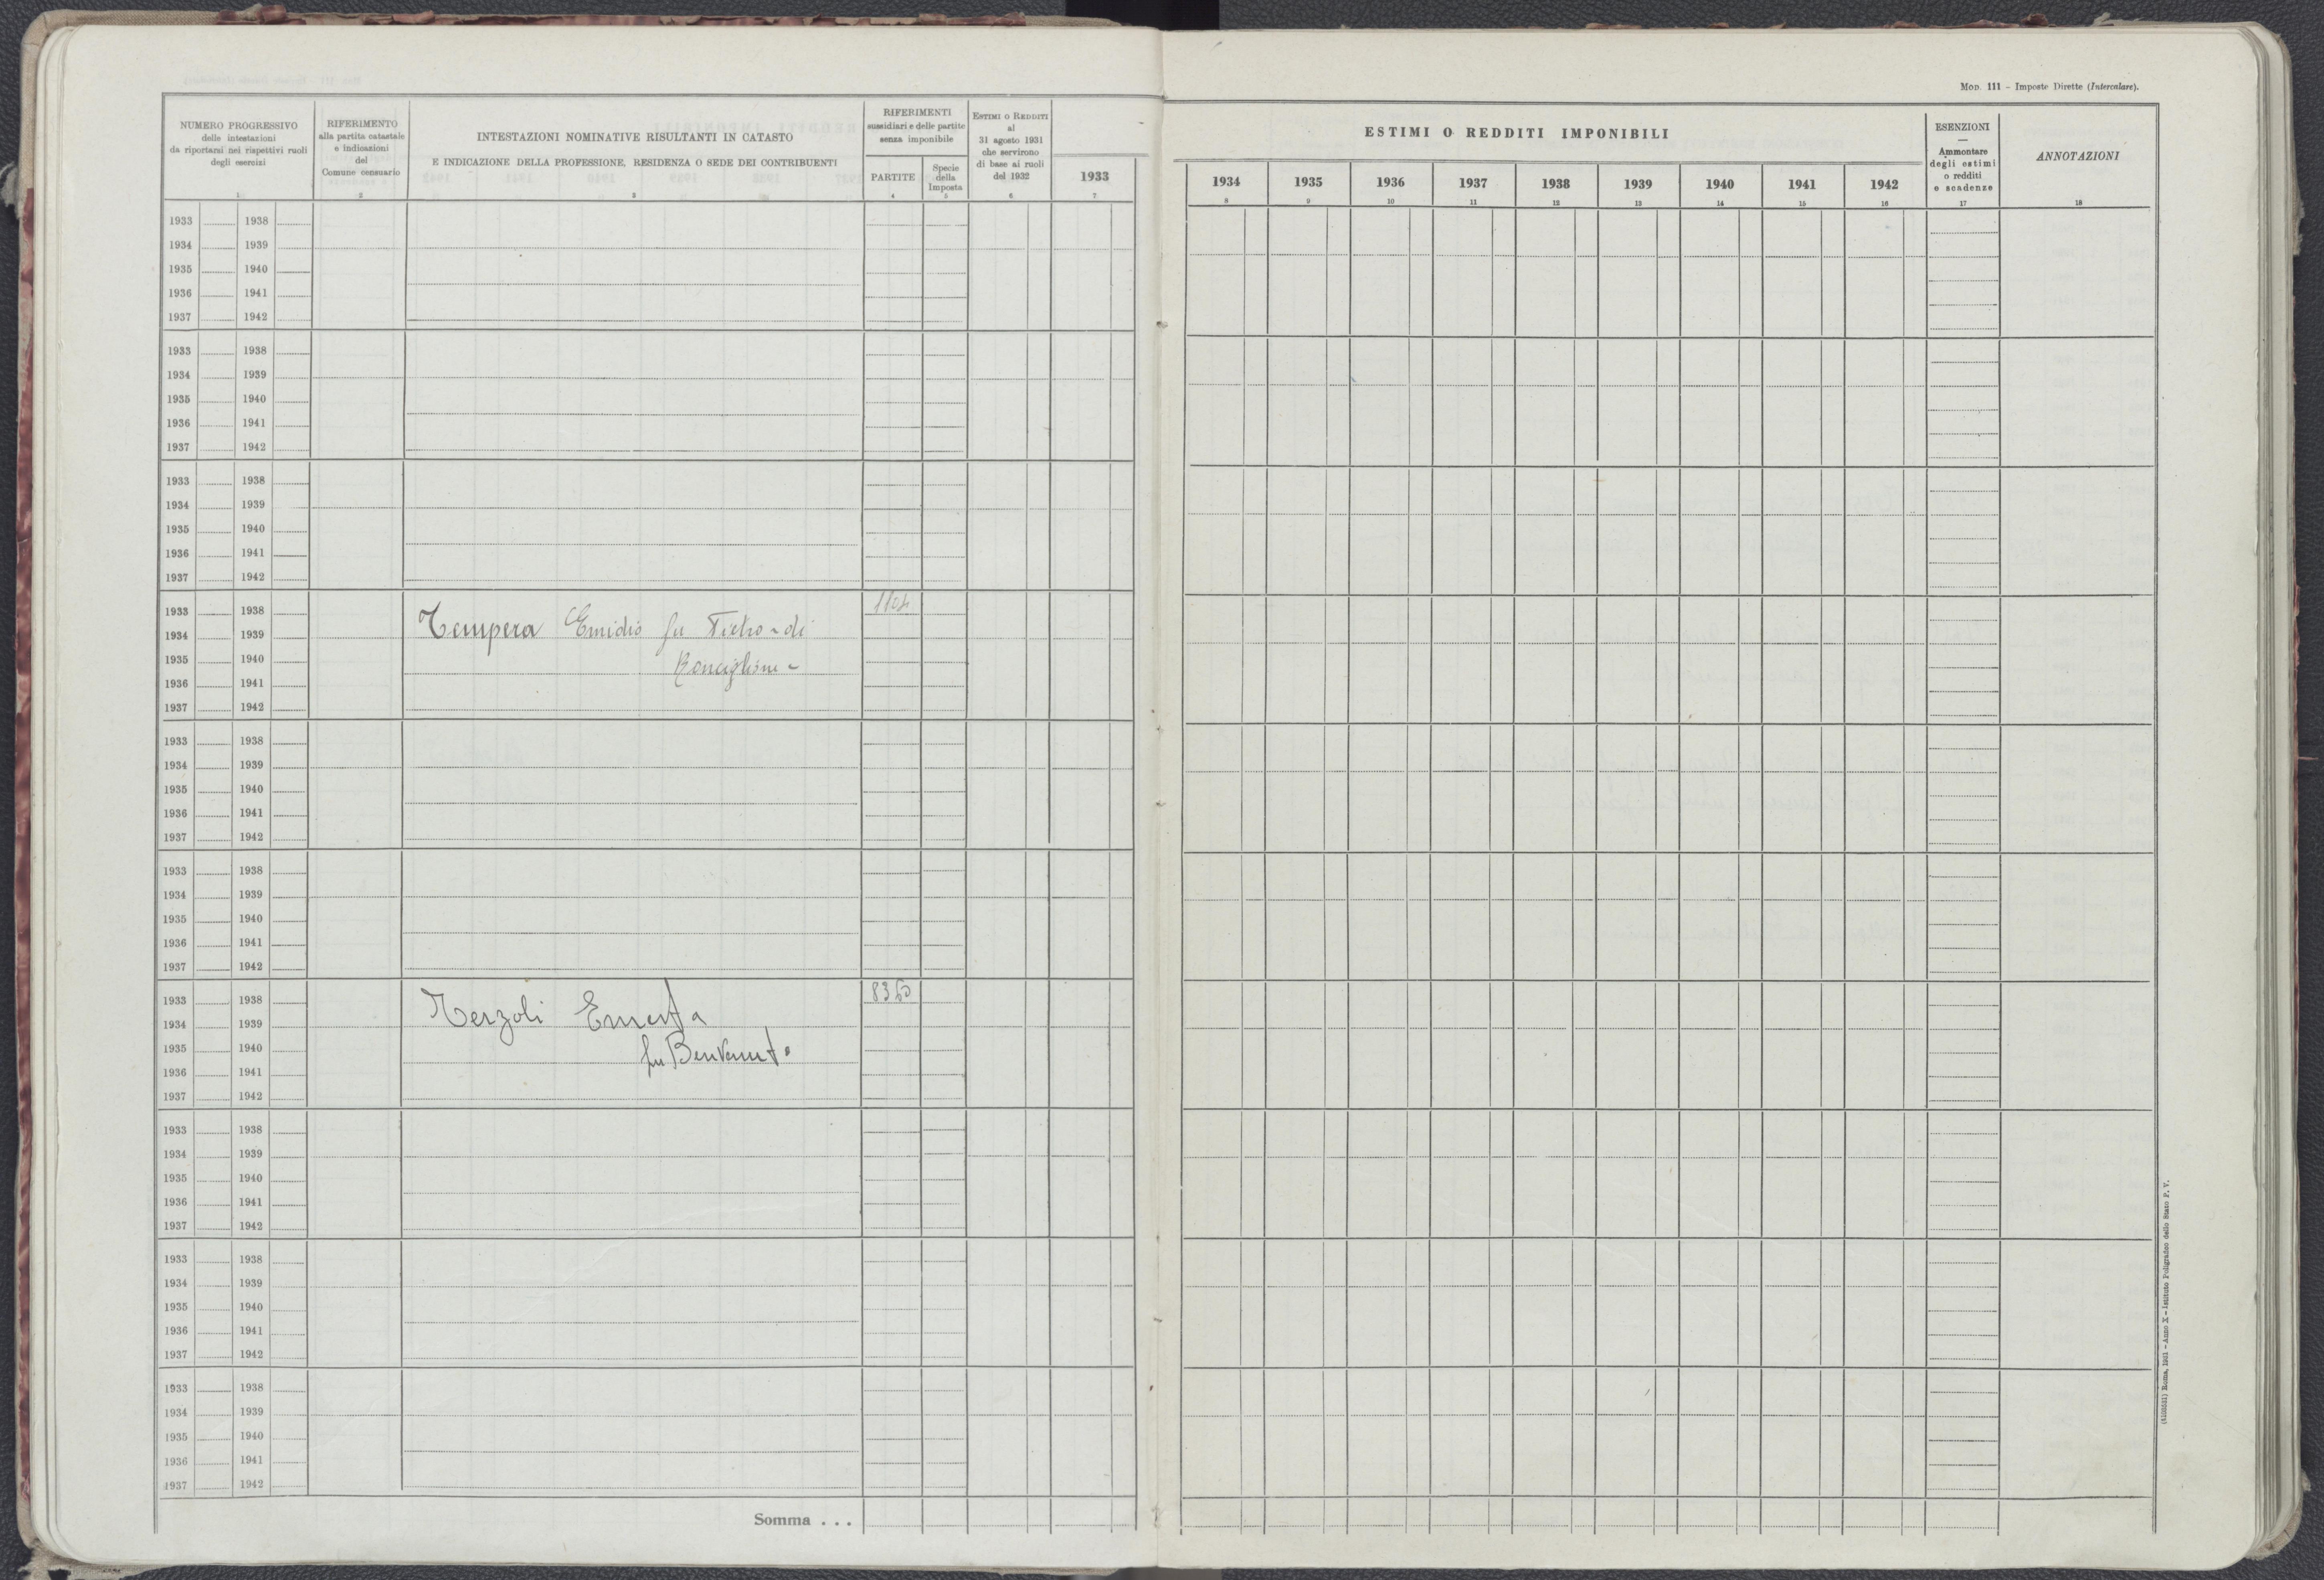 Mod. 111 - Imposte Dirette (Intercalare).
NUMERO PROGRESSIVO
delle intestazioni
da riportarsi nei rispettivi ruoli
degli esercizi
1
RIFERIMENTO
alla partita catastale
e indicazioni
del
Comune censuario
2
INTESTAZIONI NOMINATIVE RISULTANTI IN CATASTO
E INDICAZIONE DELLA PROFESSIONE, RESIDENZA O SEDE DEI CONTRIBUENTI
3
RIFERIMENTI
sussidiari e delle partite
senza imponibile
PARTITE
4
Specie
della
Imposta
5
Estimi o Redditi
al
31 agosto 1931
che servirono
di base ai ruoli
del 1932
6
1933
7
ESTIMI O REDDITI IMPONIBILI
1934 1935 1936 1937 1938 1939 1940 1941 1942
8 9 10 11 12 13 14 15 16
ESENZIONI
Ammontare
degli estimi
o redditi
e scadenze
17
ANNOTAZIONI
18
1933 1938
1934 1939
1935 1940
1936 1941
1937 1942
1933 1938
1934 1939
1935 1940
1936 1941
1937 1942
1933 1938
1934 1939
1935 1940
1936 1941
1937 1942
1933 1938
1934 1939 Tempera Emidio fu Pietro - di
1935 1940 Ronciglione -
1936 1941
1937 1942
1933 1938
1934 1939
1935 1940
1936 1941
1937 1942
1933 1938
1934 1939
1935 1940
1936 1941
1937 1942
1933 1938
1934 1939 Terzoli Ernesta
1935 1940 fu Benvenuto
1936 1941
1937 1942
1933 1938
1934 1939
1935 1940
1936 1941
1937 1942
1933 1938
1934 1939
1935 1940
1936 1941
1937 1942
1933 1938
1934 1939
1935 1940
1936 1941
1937 1942
Somma . . .
Roma, 1931 - Anno X - Istituto Poligrafico dello Stato P. V.